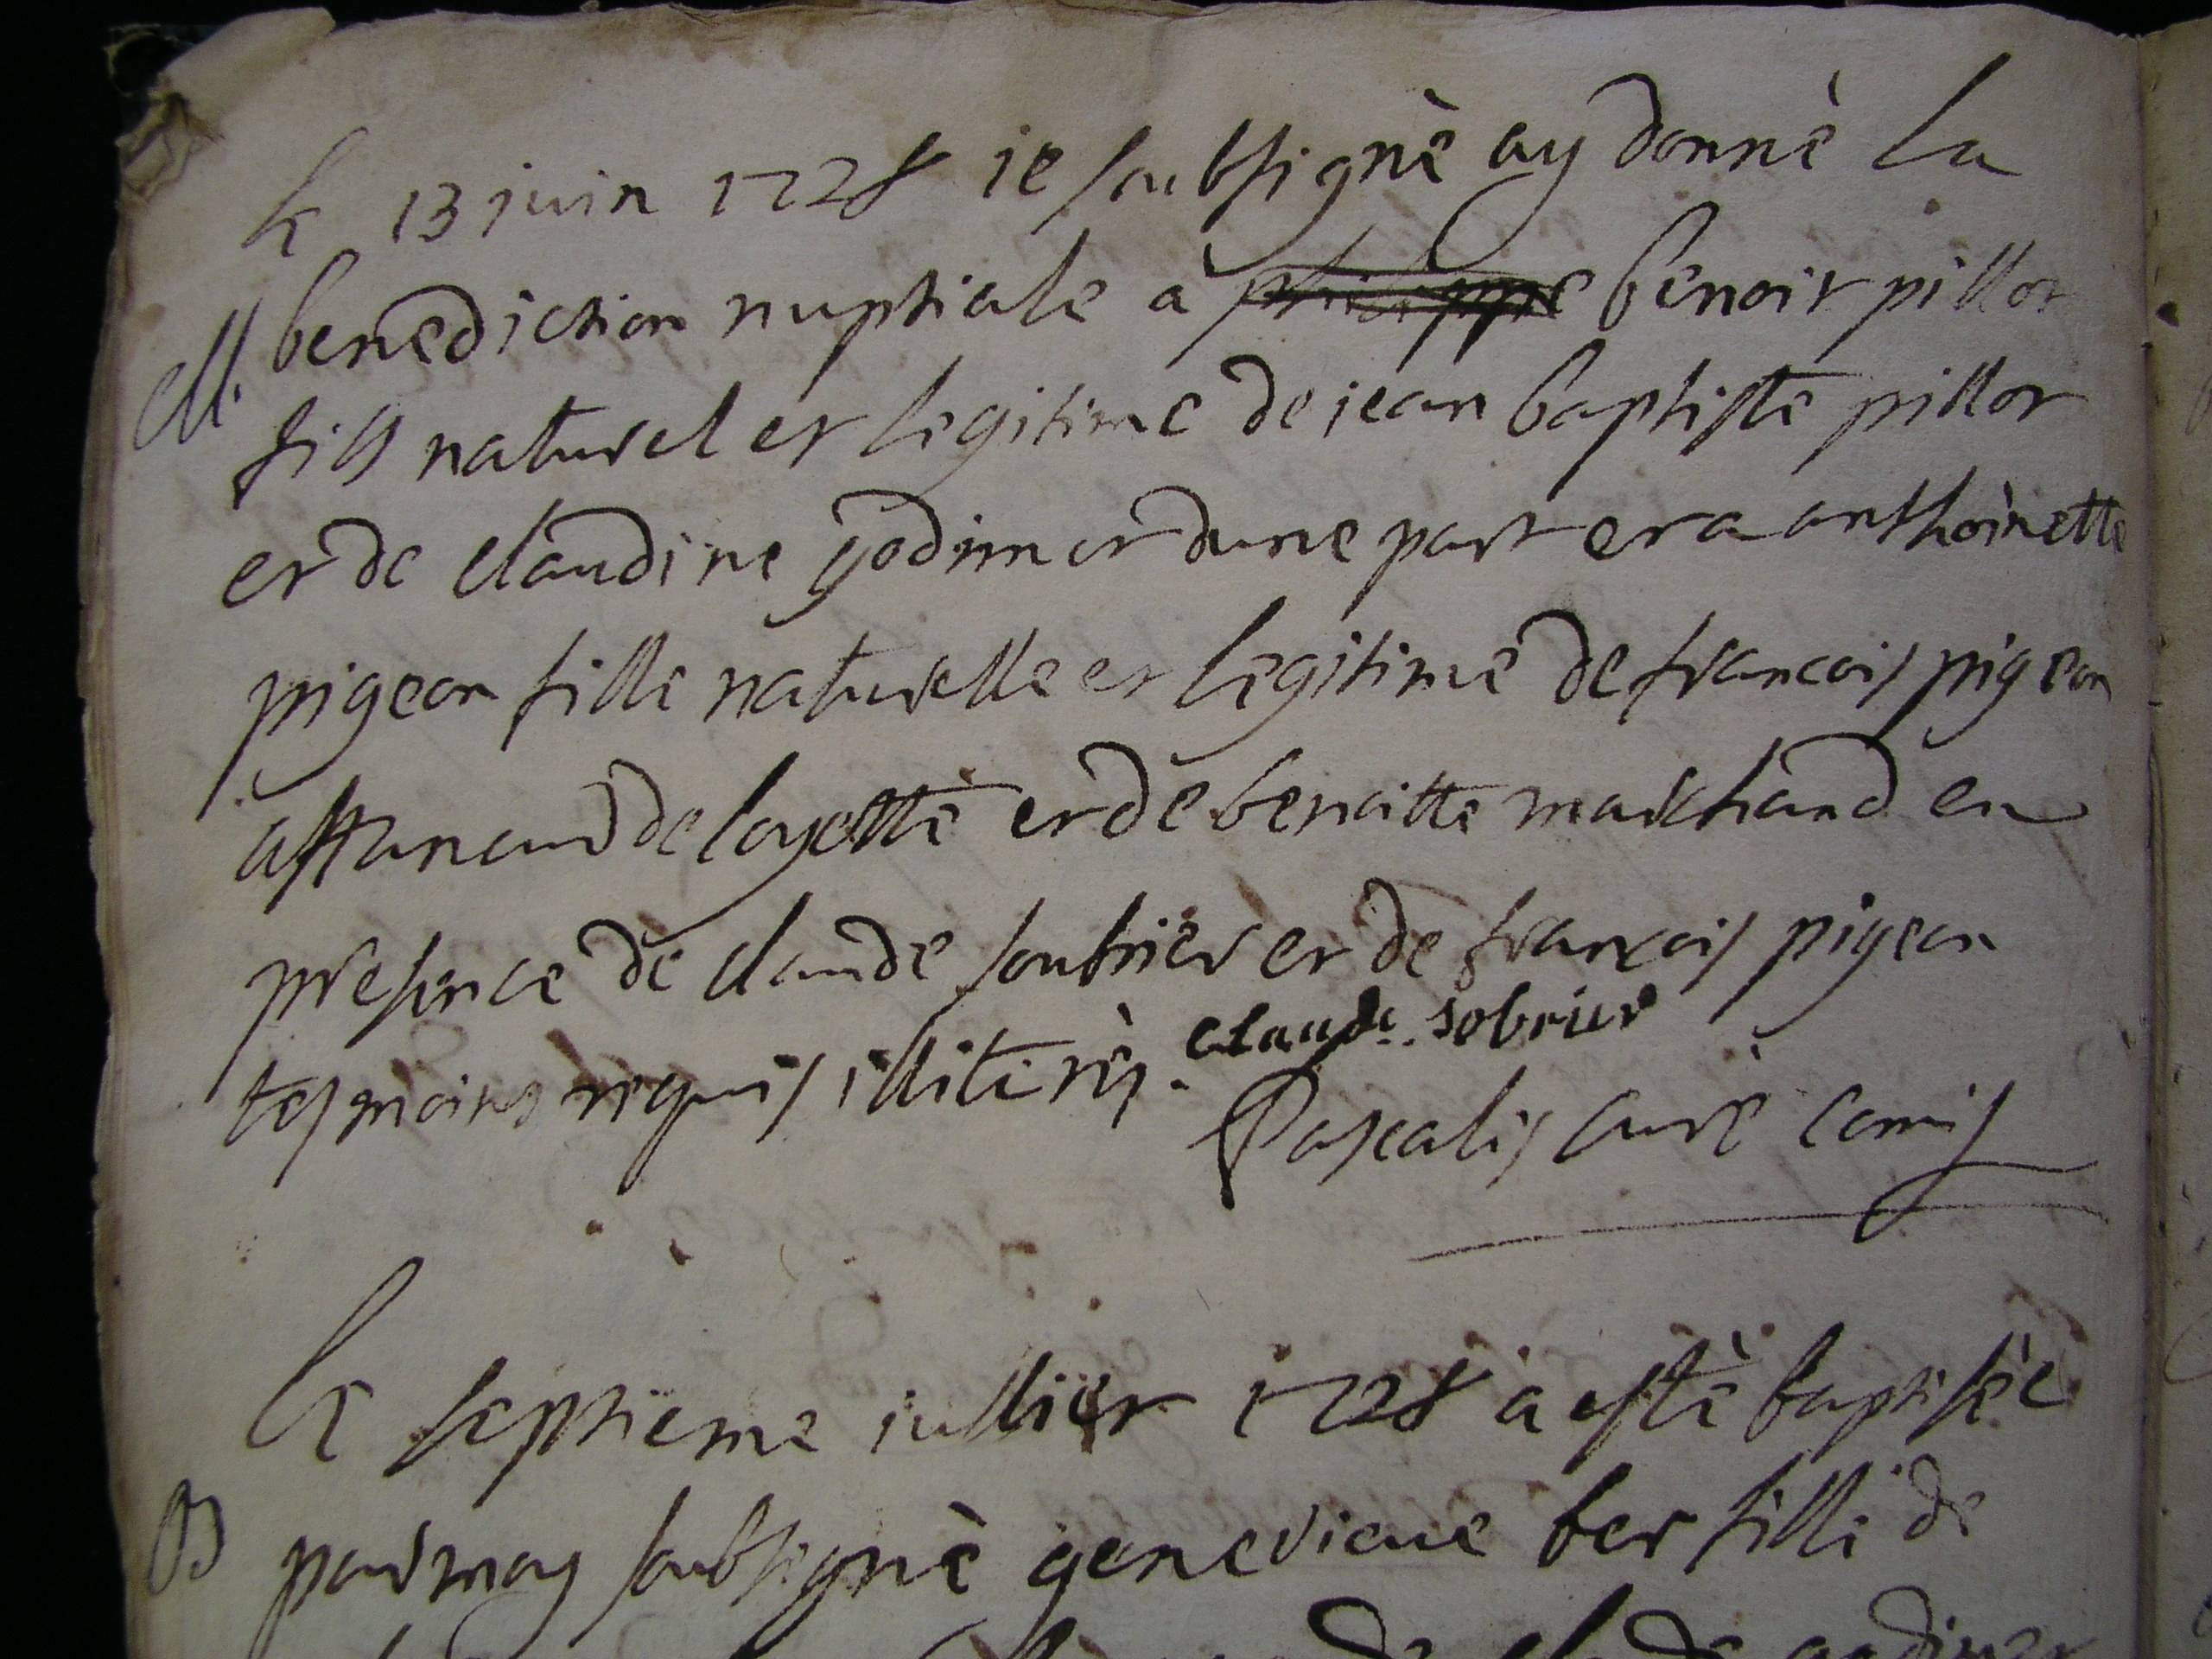 le 13 juin 1728 ie soubsignè ay donnè la
M. benediction nuptiale à philippe benoit pillot
fils naturel et legitime de iean baptiste pillot
et de claudine godimot dune part et a anthoinette
pigeon fille naturelle et legitime de francois pigeon
de layette et de benoitte marchand en
presence de claude soubrier et de francois pigeon
tesmoins requis illiterès. claude sobrier
Pascalis curè comis
le septieme iullier 1728 a estè baptisèe
B par moy soubsegnè genevieve bet fille de